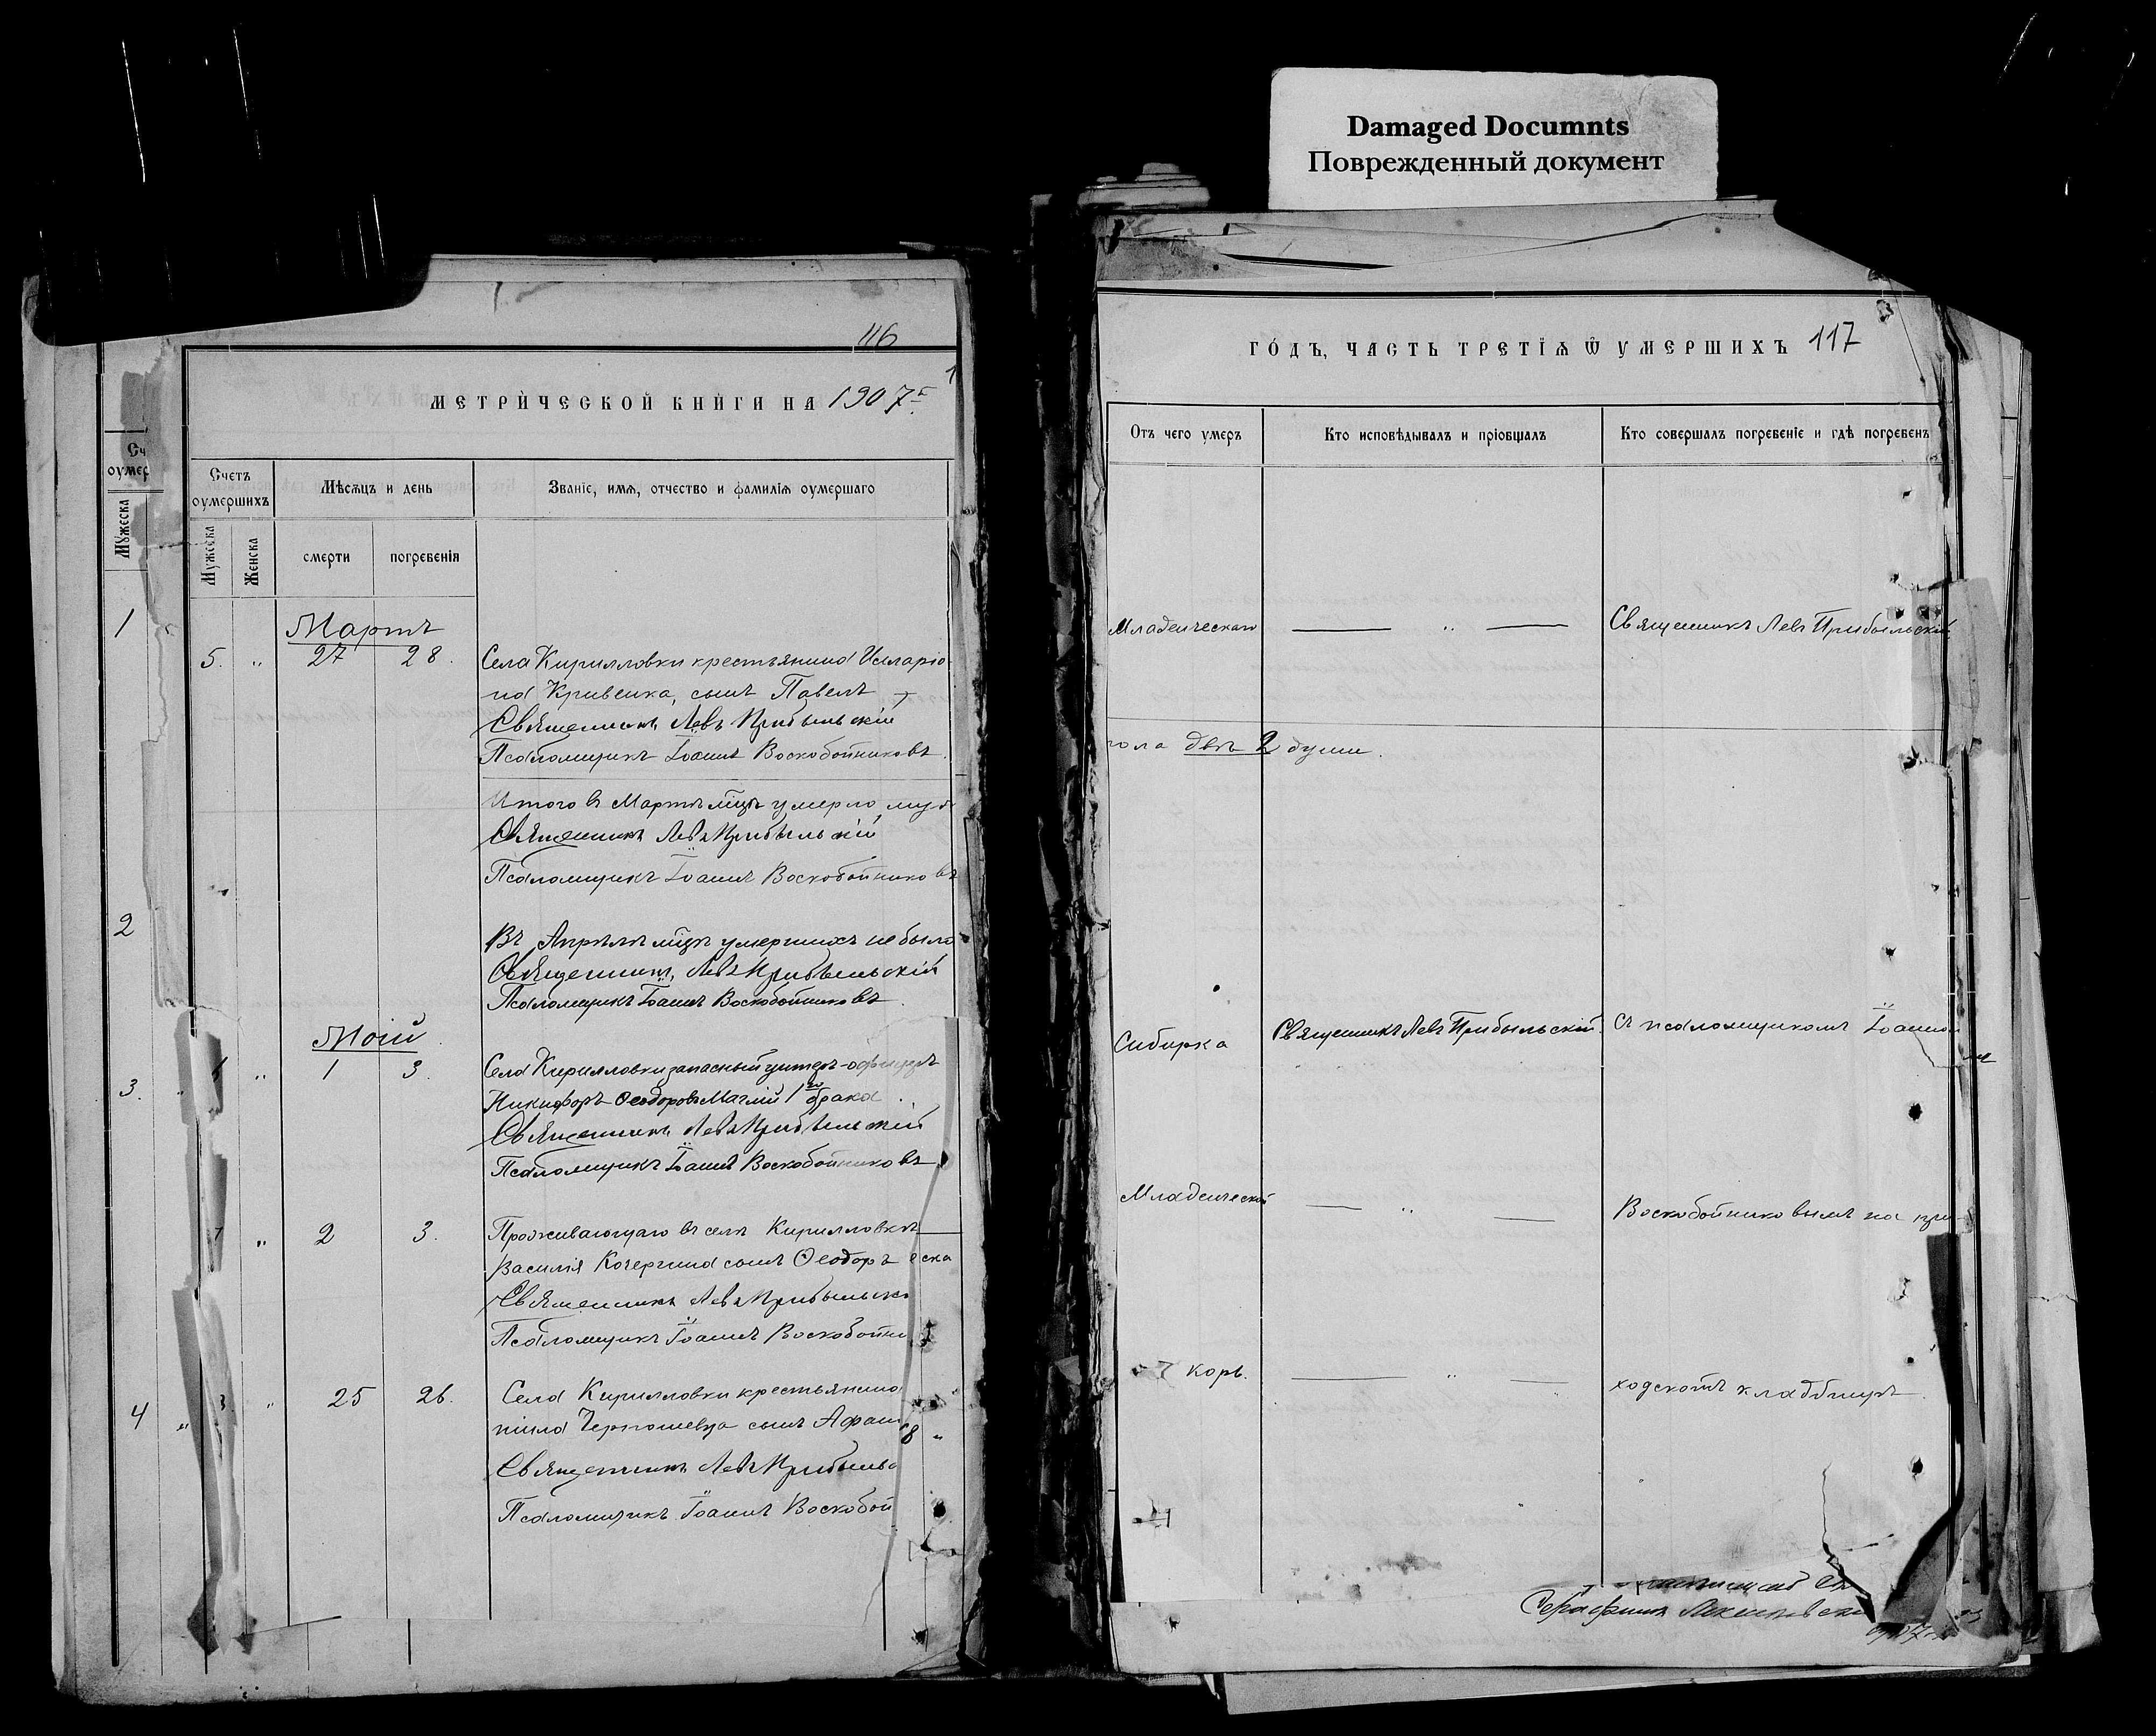 Damaged Documnts
Поврежденный документ
116
МЕТРИ́ЧЕСКОЙ КНИ́ГИ НА 1907 г.
Сч
оумер
Мужеска
Счетъ
оумершихъ
Мѣсяцъ и день
Званіе, имя, отчество и фамилія оумершаго
Мужеска
Женска
смерти
погребенія
1
Мартъ
5. „ 27 28. Села Кирилловки крестьянина Илларіо-
на Кривенка, сынъ Павелъ
Священникъ Левъ Прибыльскій
Псаломщикъ Іоаннъ Воскобойниковъ.
Итого в Мартѣ мцѣ умерло муж
Священникъ Левъ Прибыльскій
Псаломщикъ Іоаннъ Воскобойниковъ
2
Въ Апрѣлѣ мцѣ умершихъ не было
Священникъ Левъ Прибыльскій
Псаломщикъ Іоаннъ Воскобойниковъ.
Маій
3. „ 1 3. Села Кирилловки запасный унтеръ-офицеръ
Никифоръ Ѳеодоровъ 1го брака.
Священникъ Левъ Прибыльскій
Псаломщикъ Іоаннъ Воскобойниковъ
7 „ 2 3. Проживающаго въ селѣ Кирилловкѣ
Василія Кочергина сынъ Ѳеодоръ
еска
Священникъ Левъ Прибыльскі
Псаломщикъ Іоаннъ Воскобойни
4 „ „ 25 26. Села Кирилловки крестьянина
сынъ Афан
8 „
Священникъ Левъ Прибыльс
Псаломщикъ Іоаннъ Воскобой
ГО́ДЪ, ЧАСТЬ ТРЕТІЯ Ѿ УМЕРШИХЪ 117
Отъ чего умеръ
Кто исповѣдывалъ и пріобщалъ
Кто совершалъ погребеніе и гдѣ погребенъ
Младенческаго — „ — Священникъ Левъ Прибыльскій
пола двѣ 2 души.
Сибирка Священникъ Левъ Прибыльскій. съ псаломщикомъ Іоанном
Младенческой — „ — Воскобойниковымъ на при-
корь. — „ — ходскомъ кладбищѣ.
Серафимъ